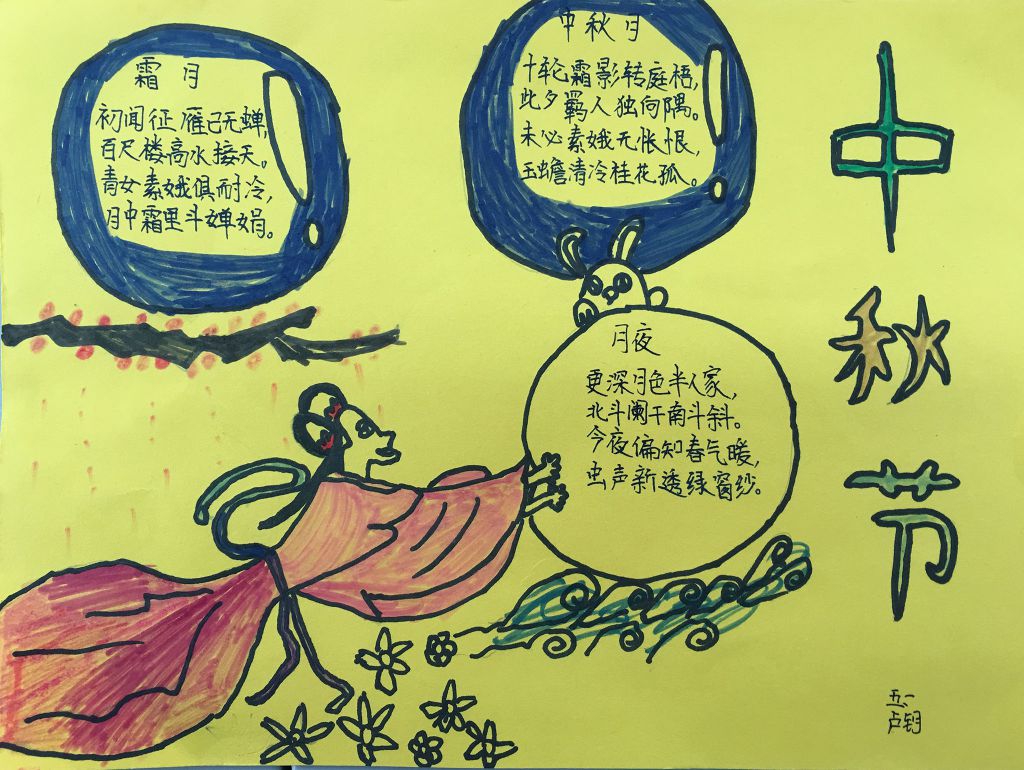 霜月
初闻征雁己无蝉,
百尺楼高水接天。
青女素娥俱耐冷,
月中霜里斗婵娟。
中秋月
十轮霜影转庭梧,
此夕羁人独向隅。
未必素娥无怅恨,
玉蟾清冷桂花孤。
月夜
更深月色半人家,
北斗阑干南斗斜。
今夜偏知春气暖,
虫声新透绿窗纱。
中秋节
五、一
卢钥